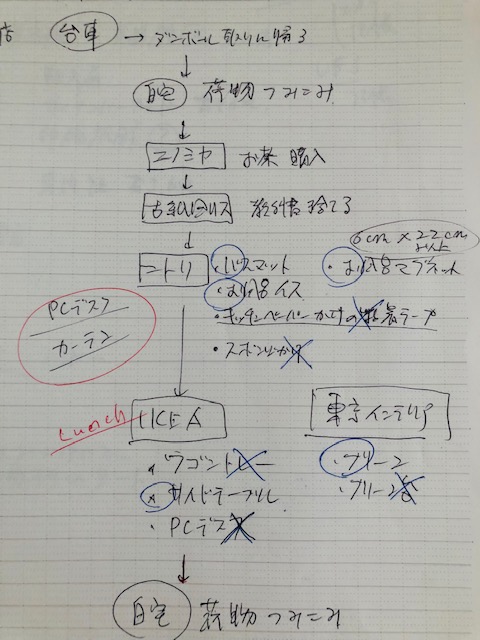 店 台車 → ダンボール取りに帰る
自宅 荷物つみこみ
コノミヤ お茶購入
教科書捨てる
6cm×22cm
以上
ニトリ ・バスマット ・お風呂マグネット
・お風呂イス
・キッチンペーパーかけの テープ
・スポンジかけ
PCデスク
カーテン
Lunch IKEA 東京インテリア
・ワゴントレー ・グリーン
・サイドテーブル ・グリーン
・PCデスク
自宅 荷物つみこみ